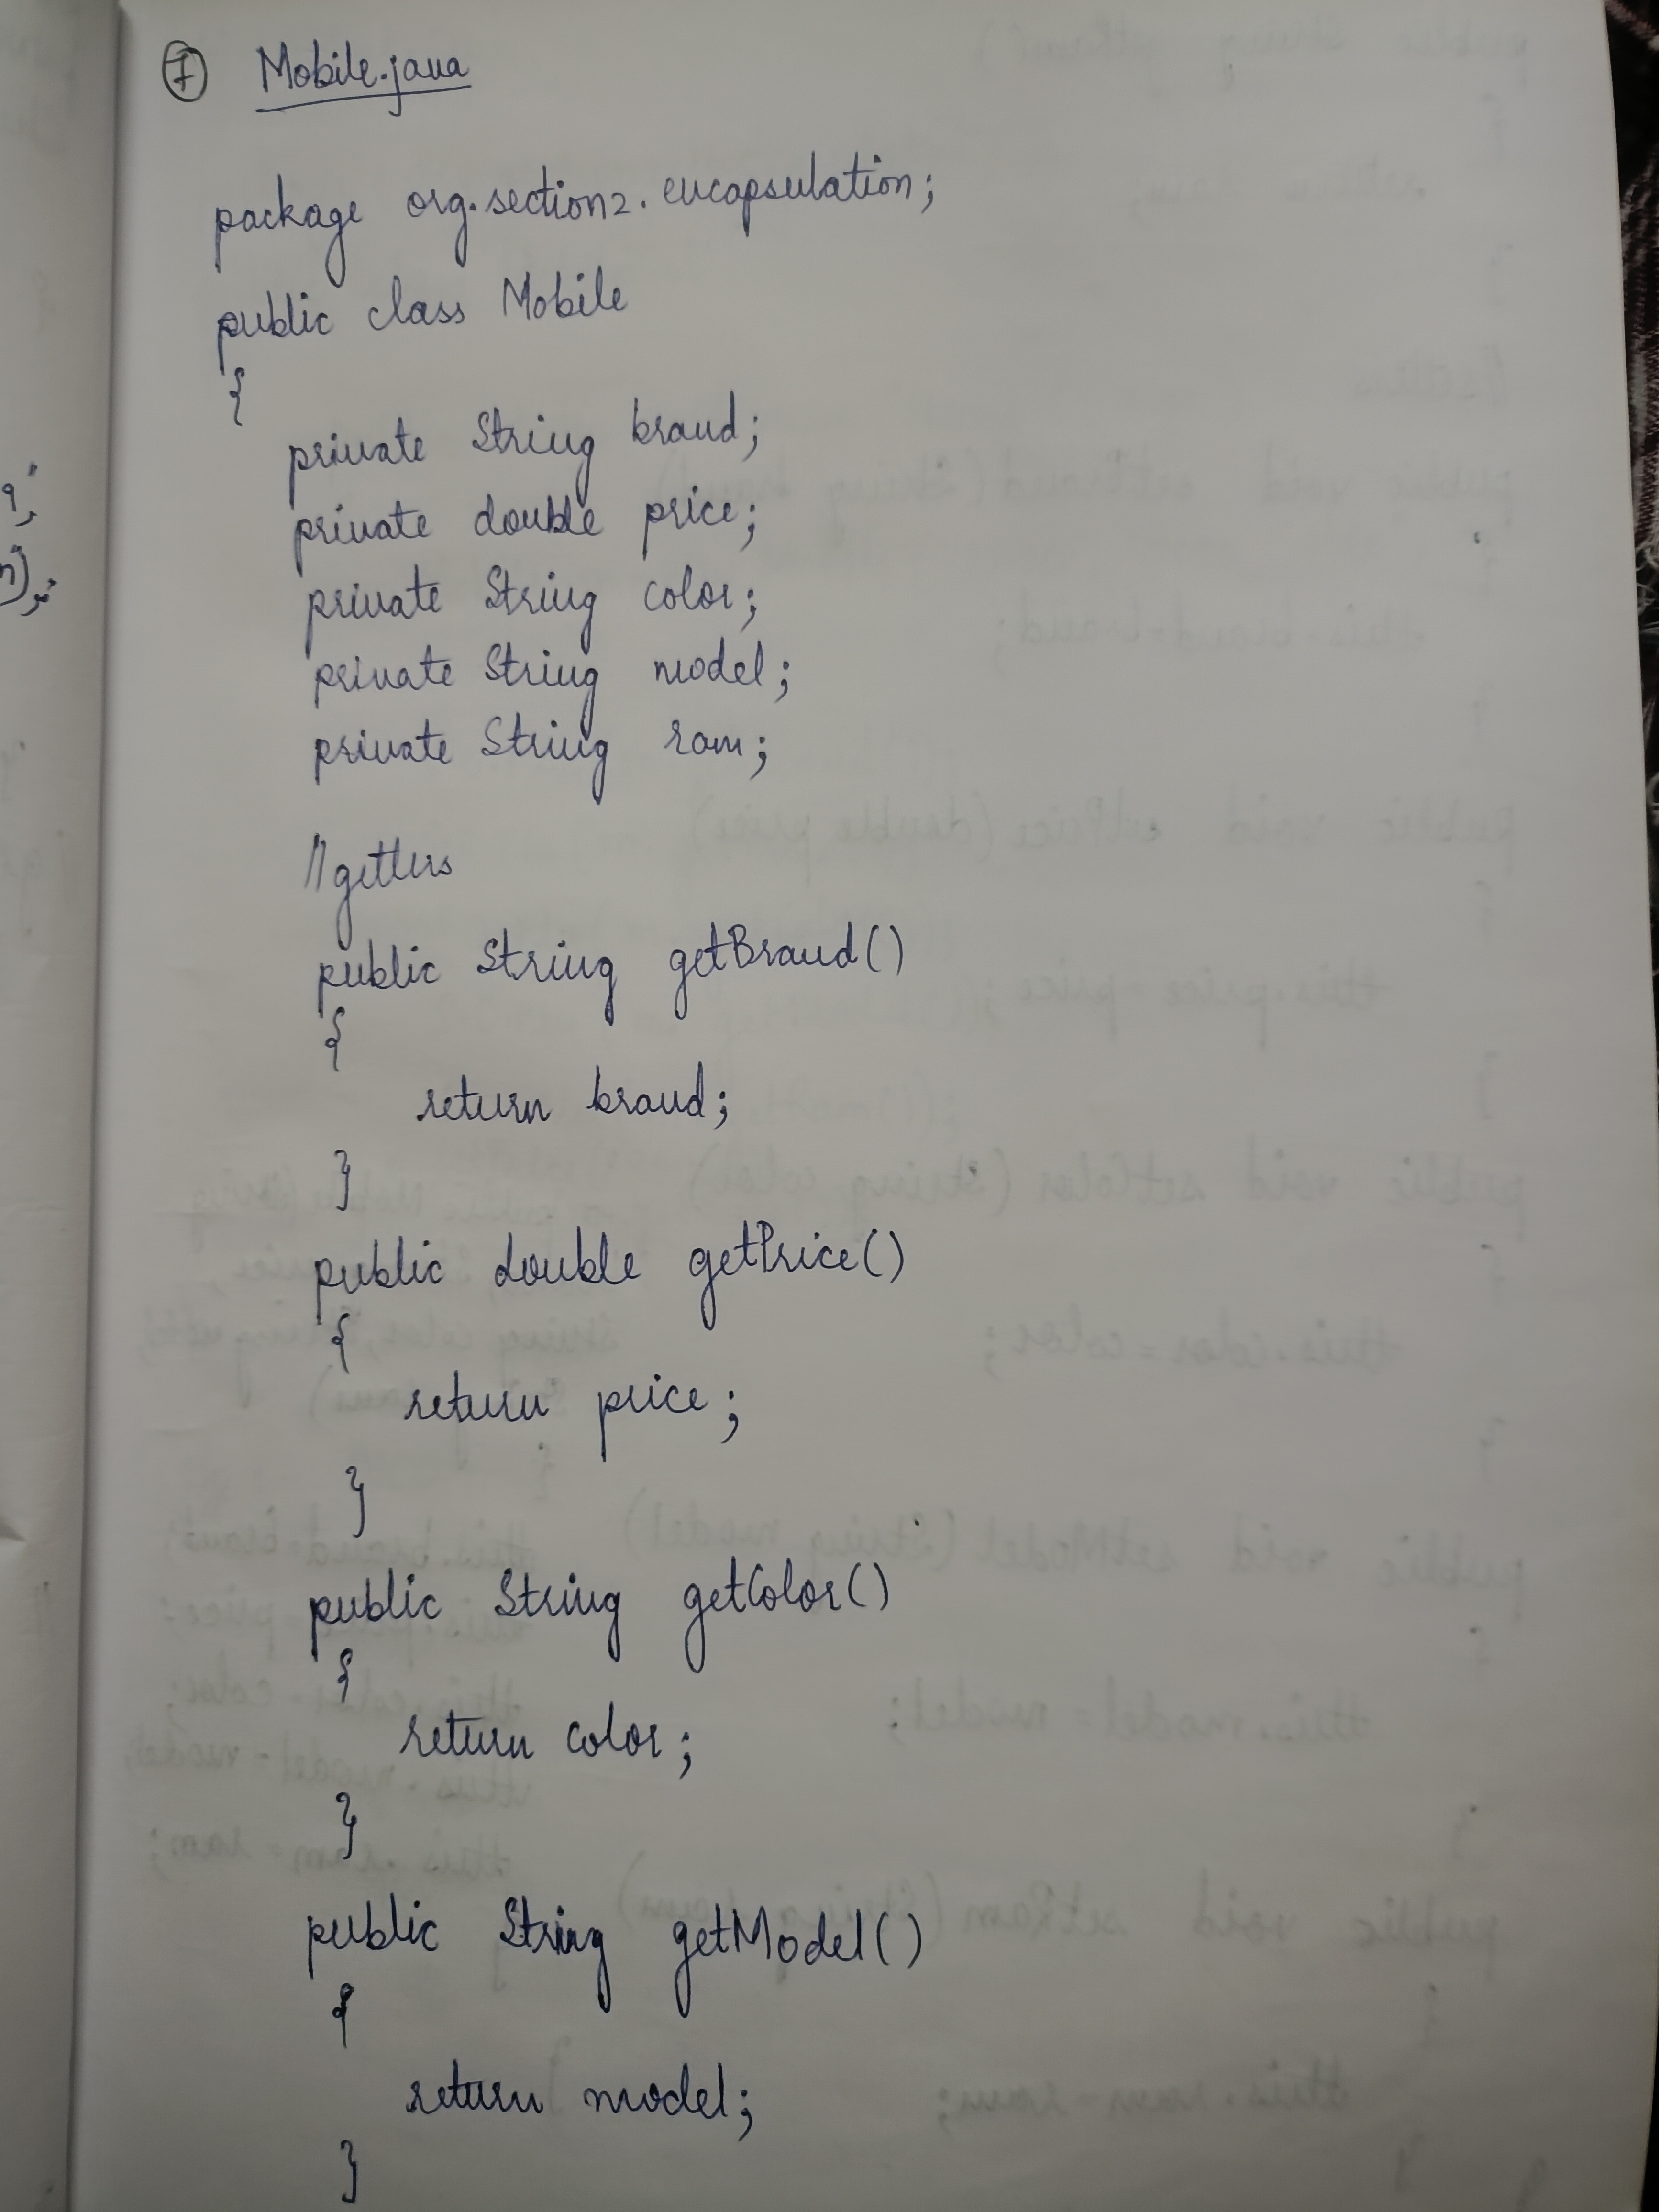 7 Mobile.java
package org.section2.encapsulation;
public class Mobile
{
private String brand;
private double price;
private String color;
private String model;
private String ram;
//getters
public String getBrand()
{
return brand;
}
public double getPrice()
{
return price;
}
public String getColor()
{
return color;
}
public String getModel()
{
return model;
}